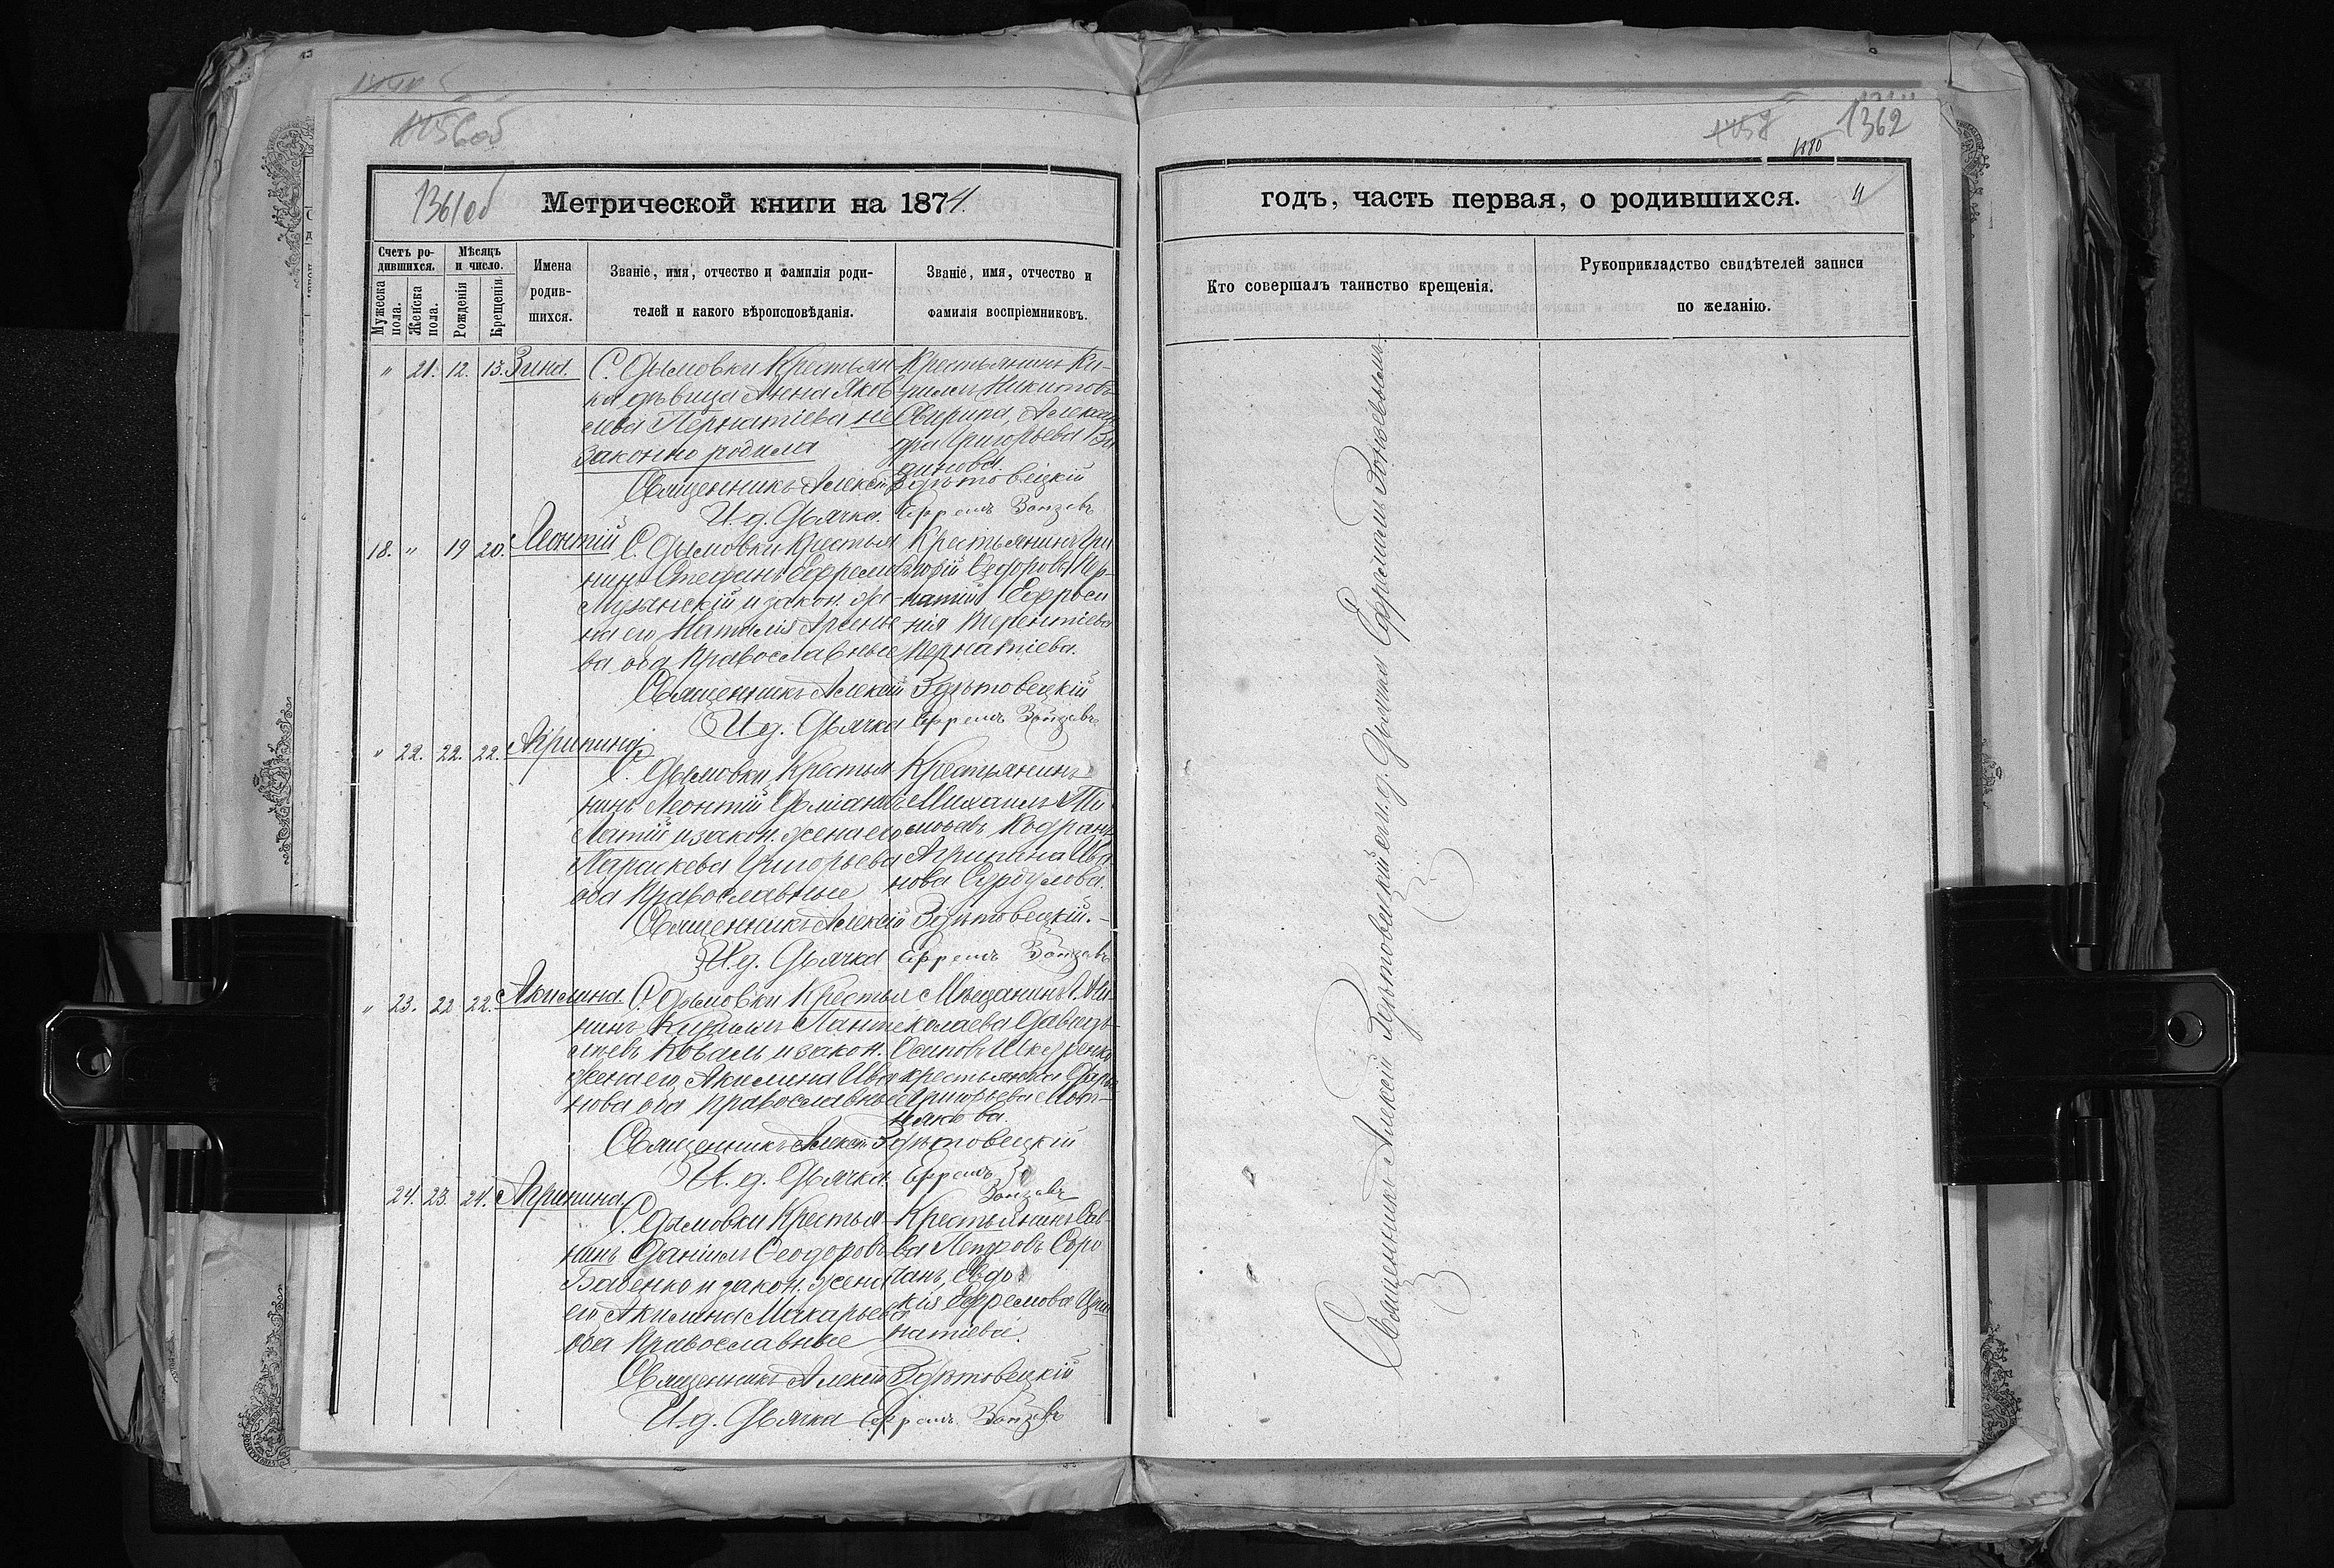 1361об
Метрической книги на 1874.
Счетъ ро-
дившихся.
Мужеска
пола.
Женска
пола.
Мѣсяцъ
и число.
Рожденія
Крещенія
Имена
родив-
шихся.
Званіе, имя, отчество и фамилія роди-
телей и какого вѣроисповѣданія.
Званіе, имя, отчество и
фамилія воспріемниковъ.
" 21. 12. 13. Зина.
С. Дымовки Крестьян
ка дѣвица Анна Яков
лева Пернатіева не
законно родила
Крестьянинъ Ки-
риллъ Никитовъ
Свирипа, Алексан
дра Григорьева
Священникъ Алексій Здѣтовецкій
И. д. Дьячка Ефремъ
18. " 19 20. Леонтій
С. Дымовки Крестья
нинъ Стефанъ Ефремовъ
и закон. же-
на его Наталія Арсенье
ва оба Православные
Крестьянинъ Гри
горій Сидоровъ Пер-
натій Ефроси
нія Терентіева
Пернатіева.
Священникъ Алексій Здѣтовецкій
И. д. Дьячка Ефремъ
" 22. 22. 22. Агрипина
С. Дымовки Крестья
нинъ Леонтій Даміановъ
Латій и закон. жена его
Параскева Григорьева
оба Православные
Крестьянинъ
Михаилъ Ти
моѳеевъ Кодрянъ
Агрипина Ива
нова Сурдулова.
Священникъ Алексій Здѣтовецкій.
И. д. Дьячка Ефремъ
" 23. 22 22. Акилина.
С. Дымовки Крестья
нинъ Кириллъ Панте
леевъ Коваль и закон.
жена его Акилина Ива
нова оба Православные
Мѣщанинъ Г. Ни-
колаева Давидъ
Осиповъ
крестьянка Дарья
Григорьева
Священникъ Алексій Здѣтовецкій
И. д. Дьячка Ефремъ
24. 23. 24. Агрипина
С. Дымовки Крестья-
нинъ Даніилъ Ѳеодоровъ
Бабенко и закон. жена
его Акилина Макарьева
оба Православные
Крестьянинъ Сав-
ва Петровъ Соро
чанъ, Евдо
кія Ефремова
натіева.
Священникъ Алексій Здѣтовецкій
И. д. Дьячка Ефремъ
1362
1880
годъ, часть первая, о родившихся.
11
Кто совершалъ таинство крещенія.
Рукоприкладство свидѣтелей записи
по желанію.
Священникъ Алексій Здѣтовецкій съ и. д. Дьячка Ефремомъ